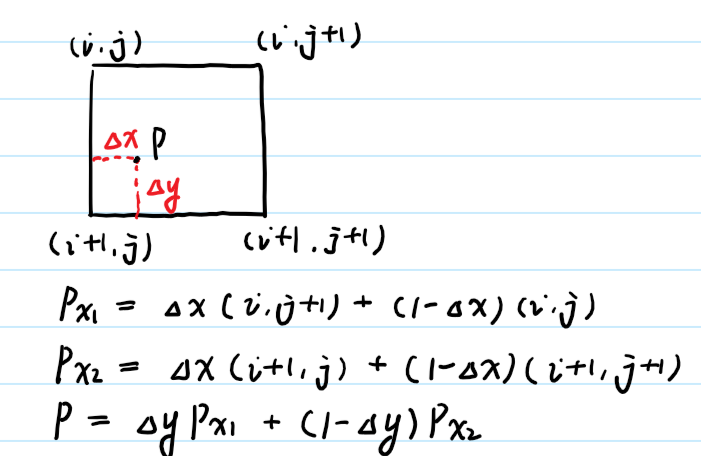 (i.j) (i.j+1)
Δx P
Δy
(i+1.j) (i+1.j+1)
Px₁ = Δx(i.j+1) + (1-Δx)(i.j)
Px₂ = Δx(i+1.j) + (1-Δx)(i+1.j+1)
P = Δy Px₁ + (1-Δy)Px₂